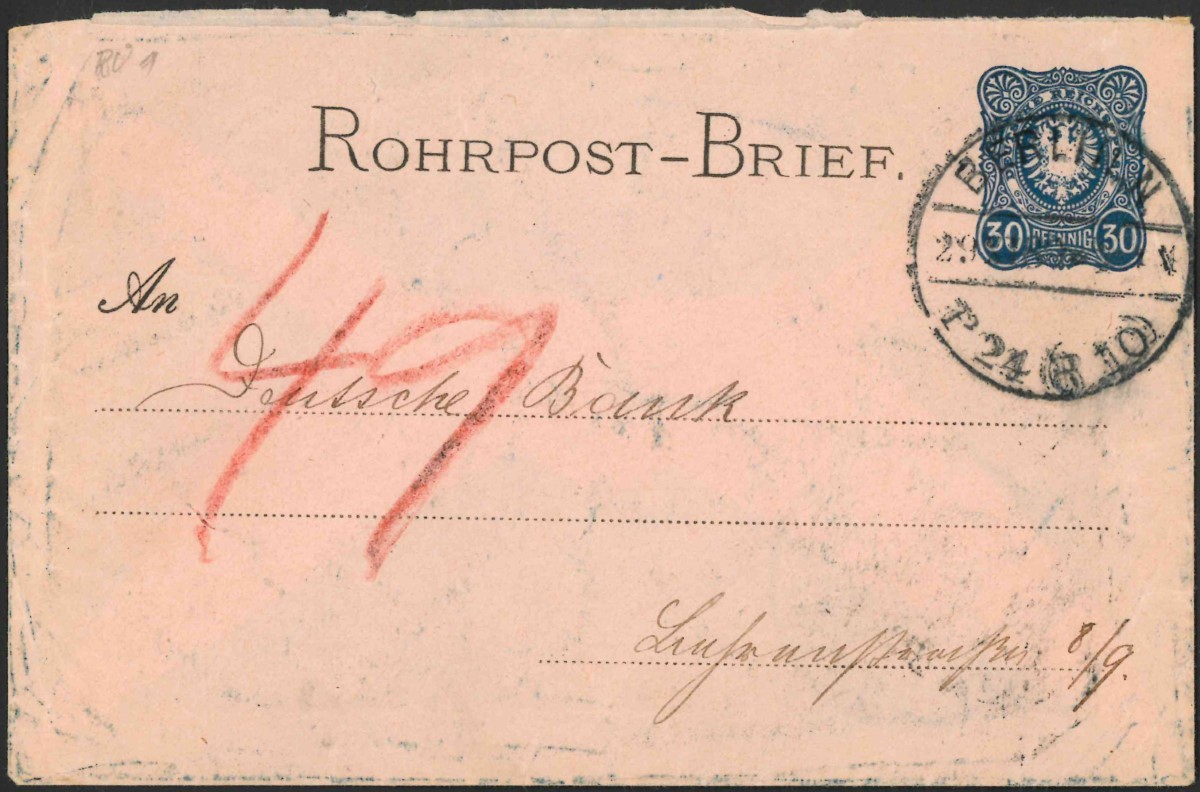 ROHRPOST-BRIEF.
REICHS
30 PFENNIG 30
BERLIN
29
P 24 (R 10)
An
49
Deutsche Bank
Behrenstrasse 8/9.